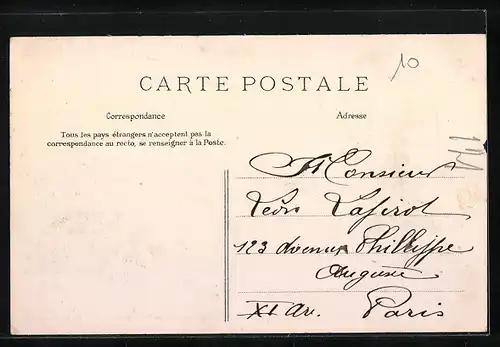 10
CARTE POSTALE
Correspondance
Adresse
Tous les pays étrangers n'acceptent pas la
correspondance au recto, se renseigner à la Poste.
Monsieur
Léon
123 avenue Philippe
Auguste
XI Ar. Paris